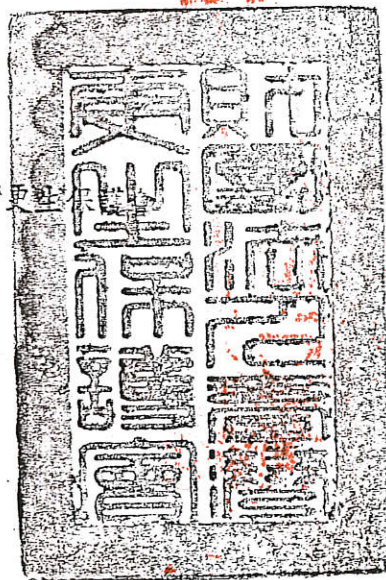 更生保護會
財團法人
更生保護會